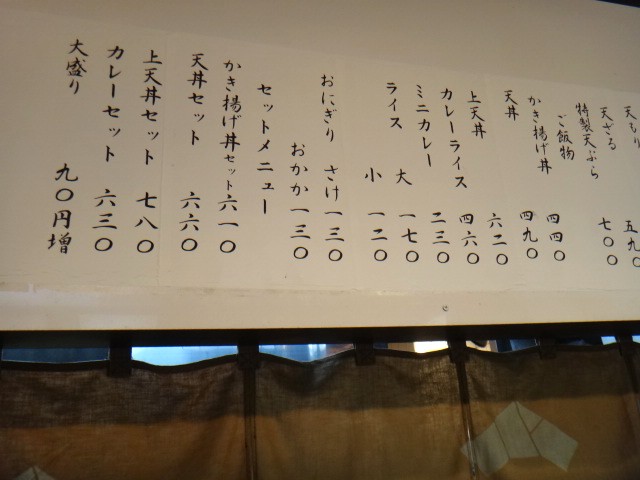 天もり
天ざる 五九〇
特製天ぷら 七〇〇
ご飯物
かき揚げ丼 四四〇
天丼 四九〇
上天丼 六二〇
カレーライス 四六〇
ミニカレー 二三〇
ライス 大 一七〇
小 一二〇
おにぎり さけ 一三〇
おかか 一三〇
セットメニュー
かき揚げ丼セット 六一〇
天丼セット 六六〇
上天丼セット 七八〇
カレーセット 六三〇
大盛り 九〇円増